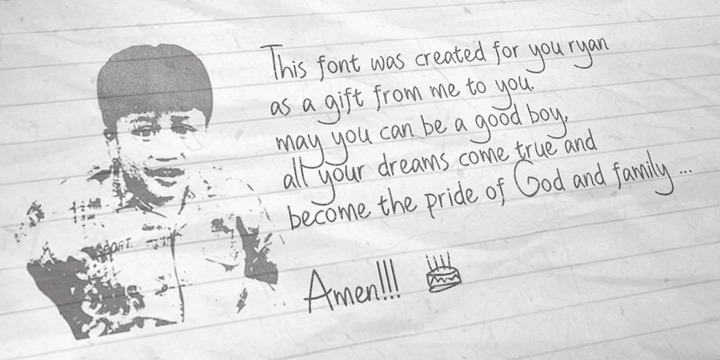 This font was created for you ryan
as a gift from me to you.
may you can be a good boy,
all your dreams come true and
become the pride of God and family ...
Amen!!!